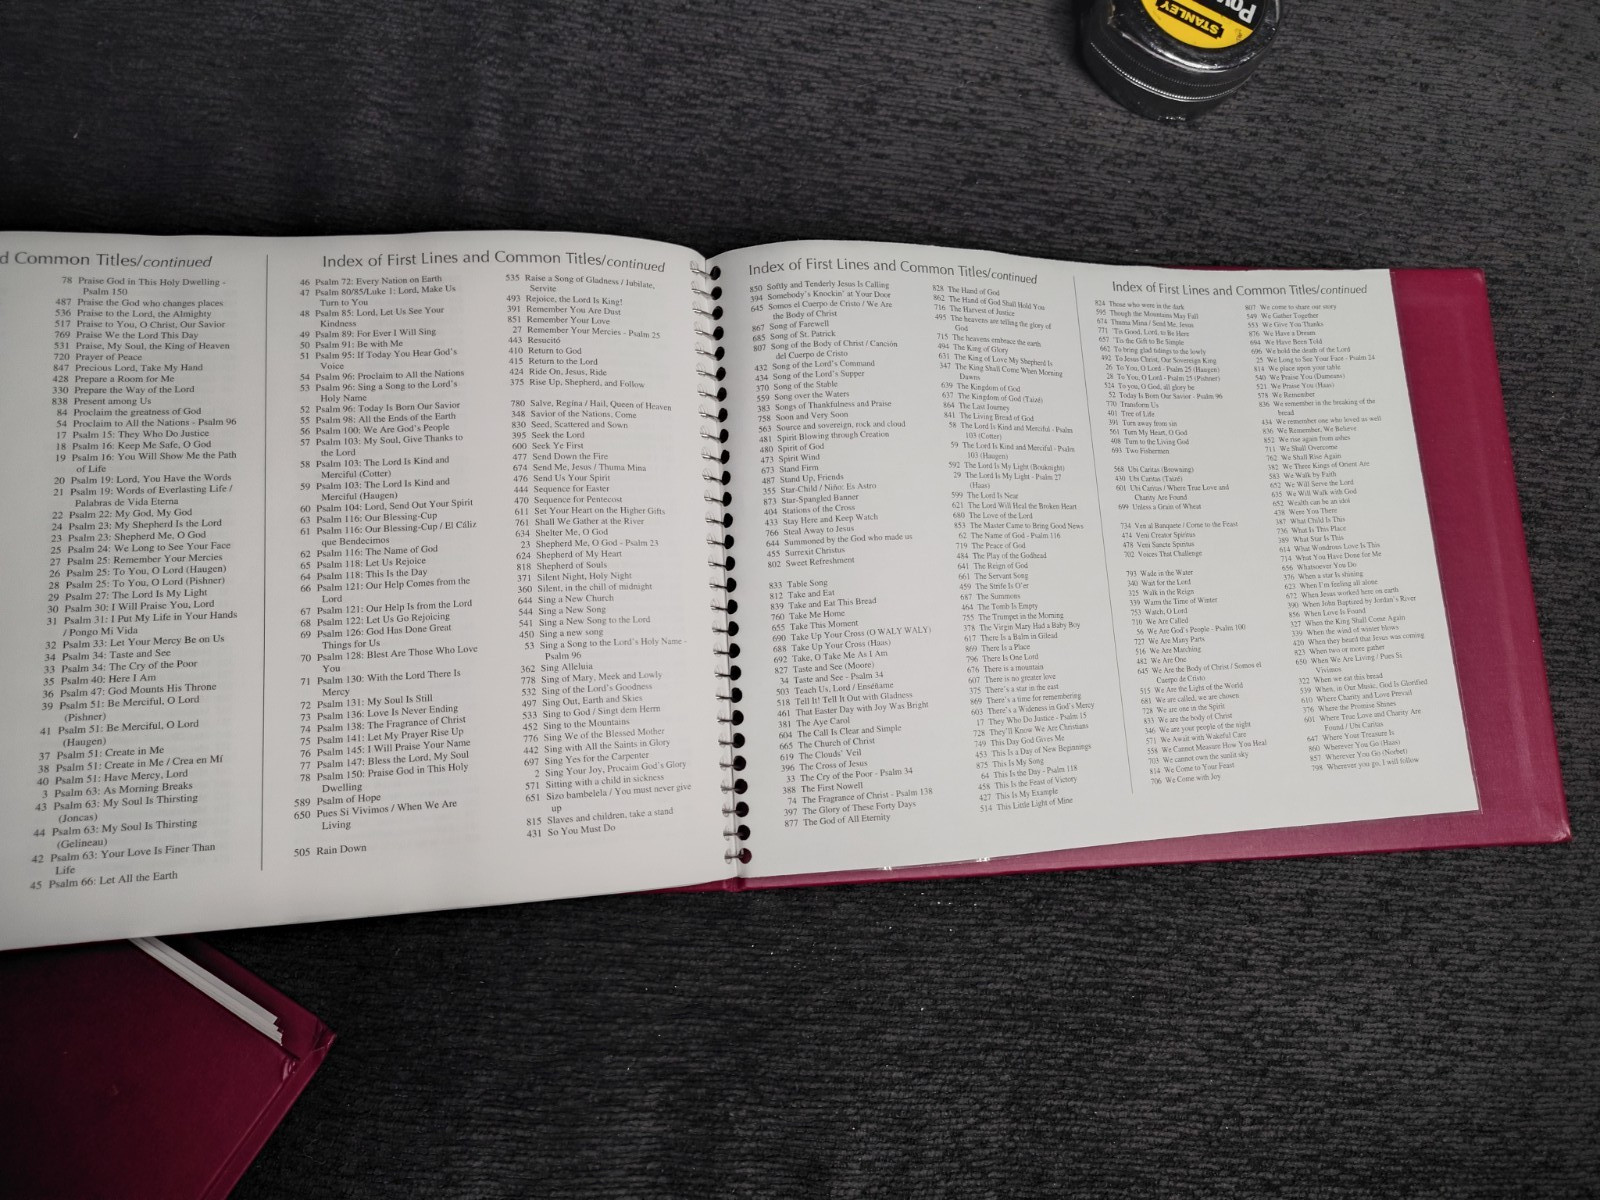 STANLEY
d Common Titles/continued
78 Praise God in This Holy Dwelling -
Psalm 150
487 Praise the God who changes places
536 Praise to the Lord, the Almighty
517 Praise to You, O Christ, Our Savior
769 Praise We the Lord This Day
531 Praise, My Soul, the King of Heaven
720 Prayer of Peace
847 Precious Lord, Take My Hand
428 Prepare a Room for Me
330 Prepare the Way of the Lord
838 Present among Us
84 Proclaim the greatness of God
54 Proclaim to All the Nations - Psalm 96
17 Psalm 15: They Who Do Justice
18 Psalm 16: Keep Me Safe, O God
19 Psalm 16: You Will Show Me the Path
of Life
20 Psalm 19: Lord, You Have the Words
21 Psalm 19: Words of Everlasting Life /
Palabras de Vida Eterna
22 Psalm 22: My God, My God
24 Psalm 23: My Shepherd Is the Lord
23 Psalm 23: Shepherd Me, O God
25 Psalm 24: We Long to See Your Face
27 Psalm 25: Remember Your Mercies
26 Psalm 25: To You, O Lord (Haugen)
28 Psalm 25: To You, O Lord (Pishner)
29 Psalm 27: The Lord Is My Light
30 Psalm 30: I Will Praise You, Lord
31 Psalm 31: I Put My Life in Your Hands
/ Pongo Mi Vida
32 Psalm 33: Let Your Mercy Be on Us
34 Psalm 34: Taste and See
33 Psalm 34: The Cry of the Poor
35 Psalm 40: Here I Am
36 Psalm 47: God Mounts His Throne
39 Psalm 51: Be Merciful, O Lord
(Pishner)
41 Psalm 51: Be Merciful, O Lord
(Haugen)
37 Psalm 51: Create in Me
38 Psalm 51: Create in Me / Crea en Mí
40 Psalm 51: Have Mercy, Lord
3 Psalm 63: As Morning Breaks
43 Psalm 63: My Soul Is Thirsting
(Joncas)
44 Psalm 63: My Soul Is Thirsting
(Gelineau)
42 Psalm 63: Your Love Is Finer Than
Life
45 Psalm 66: Let All the Earth
Index of First Lines and Common Titles/continued
46 Psalm 72: Every Nation on Earth
47 Psalm 80/85/Luke 1: Lord, Make Us
Turn to You
48 Psalm 85: Lord, Let Us See Your
Kindness
49 Psalm 89: For Ever I Will Sing
50 Psalm 91: Be with Me
51 Psalm 95: If Today You Hear God's
Voice
54 Psalm 96: Proclaim to All the Nations
53 Psalm 96: Sing a Song to the Lord's
Holy Name
52 Psalm 96: Today Is Born Our Savior
55 Psalm 98: All the Ends of the Earth
56 Psalm 100: We Are God's People
57 Psalm 103: My Soul, Give Thanks to
the Lord
58 Psalm 103: The Lord Is Kind and
Merciful (Cotter)
59 Psalm 103: The Lord Is Kind and
Merciful (Haugen)
60 Psalm 104: Lord, Send Out Your Spirit
63 Psalm 116: Our Blessing-Cup
61 Psalm 116: Our Blessing-Cup / El Cáliz
que Bendecimos
62 Psalm 116: The Name of God
65 Psalm 118: Let Us Rejoice
64 Psalm 118: This Is the Day
66 Psalm 121: Our Help Comes from the
Lord
67 Psalm 121: Our Help Is from the Lord
68 Psalm 122: Let Us Go Rejoicing
69 Psalm 126: God Has Done Great
Things for Us
70 Psalm 128: Blest Are Those Who Love
You
71 Psalm 130: With the Lord There Is
Mercy
72 Psalm 131: My Soul Is Still
73 Psalm 136: Love Is Never Ending
74 Psalm 138: The Fragrance of Christ
75 Psalm 141: Let My Prayer Rise Up
76 Psalm 145: I Will Praise Your Name
77 Psalm 147: Bless the Lord, My Soul
78 Psalm 150: Praise God in This Holy
Dwelling
589 Psalm of Hope
650 Pues Si Vivimos / When We Are
Living
505 Rain Down
535 Raise a Song of Gladness / Jubilate,
Servite
493 Rejoice, the Lord Is King!
391 Remember You Are Dust
851 Remember Your Love
27 Remember Your Mercies - Psalm 25
443 Resucitó
410 Return to God
415 Return to the Lord
424 Ride On, Jesus, Ride
375 Rise Up, Shepherd, and Follow
780 Salve, Regina / Hail, Queen of Heaven
348 Savior of the Nations, Come
830 Seed, Scattered and Sown
395 Seek the Lord
600 Seek Ye First
477 Send Down the Fire
674 Send Me, Jesus / Thuma Mina
476 Send Us Your Spirit
444 Sequence for Easter
470 Sequence for Pentecost
611 Set Your Heart on the Higher Gifts
761 Shall We Gather at the River
634 Shelter Me, O God
23 Shepherd Me, O God - Psalm 23
624 Shepherd of My Heart
818 Shepherd of Souls
371 Silent Night, Holy Night
360 Silent, in the chill of midnight
644 Sing a New Church
544 Sing a New Song
541 Sing a New Song to the Lord
450 Sing a new song
53 Sing a Song to the Lord's Holy Name -
Psalm 96
362 Sing Alleluia
778 Sing of Mary, Meek and Lowly
532 Sing of the Lord's Goodness
497 Sing Out, Earth and Skies
533 Sing to God / Singt dem Herrn
452 Sing to the Mountains
776 Sing We of the Blessed Mother
442 Sing with All the Saints in Glory
697 Sing Yes for the Carpenter
2 Sing Your Joy, Procaim God's Glory
571 Sitting with a child in sickness
651 Sizo bambelela / You must never give
up
815 Slaves and children, take a stand
431 So You Must Do
Index of First Lines and Common Titles/continued
850 Softly and Tenderly Jesus Is Calling
394 Somebody's Knockin' at Your Door
645 Somos el Cuerpo de Cristo / We Are
the Body of Christ
867 Song of Farewell
685 Song of St. Patrick
807 Song of the Body of Christ / Canción
del Cuerpo de Cristo
432 Song of the Lord's Command
434 Song of the Lord's Supper
370 Song of the Stable
559 Song over the Waters
383 Songs of Thankfulness and Praise
758 Soon and Very Soon
563 Source and sovereign, rock and cloud
481 Spirit Blowing through Creation
480 Spirit of God
473 Spirit Wind
673 Stand Firm
487 Stand Up, Friends
355 Star-Child / Niño: Es Astro
873 Star-Spangled Banner
404 Stations of the Cross
433 Stay Here and Keep Watch
766 Steal Away to Jesus
644 Summoned by the God who made us
455 Surrexit Christus
802 Sweet Refreshment
833 Table Song
812 Take and Eat
839 Take and Eat This Bread
760 Take Me Home
655 Take This Moment
690 Take Up Your Cross (O WALY WALY)
688 Take Up Your Cross (Haas)
692 Take, O Take Me As I Am
827 Taste and See (Moore)
34 Taste and See - Psalm 34
503 Teach Us, Lord / Enséñame
518 Tell It! Tell It Out with Gladness
461 That Easter Day with Joy Was Bright
381 The Aye Carol
604 The Call Is Clear and Simple
665 The Church of Christ
619 The Clouds' Veil
396 The Cross of Jesus
33 The Cry of the Poor - Psalm 34
388 The First Nowell
74 The Fragrance of Christ - Psalm 138
397 The Glory of These Forty Days
877 The God of All Eternity
828 The Hand of God
862 The Hand of God Shall Hold You
716 The Harvest of Justice
495 The heavens are telling the glory of
God
715 The heavens embrace the earth
494 The King of Glory
631 The King of Love My Shepherd Is
347 The King Shall Come When Morning
Dawns
639 The Kingdom of God
637 The Kingdom of God (Taizé)
864 The Last Journey
841 The Living Bread of God
58 The Lord Is Kind and Merciful - Psalm
103 (Cotter)
59 The Lord Is Kind and Merciful - Psalm
103 (Haugen)
592 The Lord Is My Light (Bouknight)
29 The Lord Is My Light - Psalm 27
(Haas)
599 The Lord Is Near
621 The Lord Will Heal the Broken Heart
680 The Love of the Lord
853 The Master Came to Bring Good News
62 The Name of God - Psalm 116
719 The Peace of God
484 The Play of the Godhead
641 The Reign of God
661 The Servant Song
459 The Strife Is O'er
687 The Summons
464 The Tomb Is Empty
755 The Trumpet in the Morning
378 The Virgin Mary Had a Baby Boy
617 There Is a Balm in Gilead
869 There Is a Place
796 There Is One Lord
676 There is a mountain
607 There is no greater love
375 There's a star in the east
869 There's a time for remembering
603 There's a Wideness in God's Mercy
17 They Who Do Justice - Psalm 15
728 They'll Know We Are Christians
749 This Day God Gives Me
453 This Is a Day of New Beginnings
875 This Is My Song
64 This Is the Day - Psalm 118
458 This Is the Feast of Victory
427 This Is My Example
514 This Little Light of Mine
Index of First Lines and Common Titles/continued
824 Those who were in the dark
595 Though the Mountains May Fall
674 Thuma Mina / Send Me, Jesus
771 'Tis Good, Lord, to Be Here
657 'Tis the Gift to Be Simple
662 To bring glad tidings to the lowly
492 To Jesus Christ, Our Sovereign King
26 To You, O Lord - Psalm 25 (Haugen)
28 To You, O Lord - Psalm 25 (Pishner)
524 To you, O God, all glory be
52 Today Is Born Our Savior - Psalm 96
770 Transform Us
401 Tree of Life
391 Turn away from sin
561 Turn My Heart, O God
408 Turn to the Living God
693 Two Fishermen
568 Ubi Caritas (Browning)
430 Ubi Caritas (Taizé)
601 Ubi Caritas / Where True Love and
Charity Are Found
699 Unless a Grain of Wheat
734 Ven al Banquete / Come to the Feast
474 Veni Creator Spiritus
478 Veni Sancte Spiritus
702 Voices That Challenge
793 Wade in the Water
340 Wait for the Lord
325 Walk in the Reign
339 Warm the Time of Winter
753 Watch, O Lord
710 We Are Called
56 We Are God's People - Psalm 100
727 We Are Many Parts
516 We Are Marching
482 We Are One
645 We Are the Body of Christ / Somos el
Cuerpo de Cristo
515 We Are the Light of the World
681 We are called, we are chosen
728 We are one in the Spirit
833 We are the body of Christ
346 We are your people of the night
571 We Await with Wakeful Care
558 We Cannot Measure How You Heal
703 We cannot own the sunlit sky
814 We Come to Your Feast
706 We Come with Joy
807 We come to share our story
549 We Gather Together
553 We Give You Thanks
876 We Have a Dream
694 We Have Been Told
696 We hold the death of the Lord
25 We Long to See Your Face - Psalm 24
814 We place upon your table
540 We Praise You (Dameans)
521 We Praise You (Haas)
578 We Remember
836 We remember in the breaking of the
bread
434 We remember one who loved us well
836 We Remember, We Believe
852 We rise again from ashes
711 We Shall Overcome
762 We Shall Rise Again
382 We Three Kings of Orient Are
583 We Walk by Faith
652 We Will Serve the Lord
635 We Will Walk with God
652 Wealth can be an idol
438 Were You There
387 What Child Is This
736 What Is This Place
389 What Star Is This
614 What Wondrous Love Is This
714 What You Have Done for Me
656 Whatsoever You Do
376 When a star is shining
623 When I'm feeling all alone
672 When Jesus worked here on earth
390 When John Baptized by Jordan's River
856 When Love Is Found
327 When the King Shall Come Again
339 When the wind of winter blows
420 When they heard that Jesus was coming
823 When two or more gather
650 When We Are Living / Pues Si
Vivimos
322 When we eat this bread
539 When, in Our Music, God Is Glorified
610 Where Charity and Love Prevail
376 Where the Promise Shines
601 Where True Love and Charity Are
Found / Ubi Caritas
647 Where Your Treasure Is
860 Wherever You Go (Haas)
857 Wherever You Go (Norbet)
798 Wherever you go, I will follow